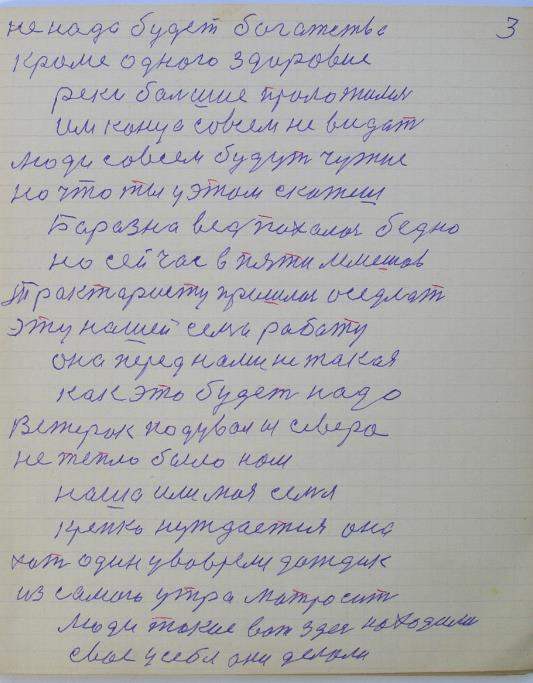 не нада будет багатства 3
кроме одного здаровие
реки балшие праложилися
им конца совсем не видат
люди совсем будут чужие
но что ты у этом скажеш
Баразна вед пахалас бедно
но сейчас в пяти лемешов
Трактаристу пришлос оседлат
эту нашей семи работу
она перед нами не такая
как это будет надо
Ветерок подувал из севера
не тепло было нам
наша или моя семя
крепко нуждается она
хот один уваврemя дождик
из самого утра матросит
люди такие вот здес находили
свае у себя они делали